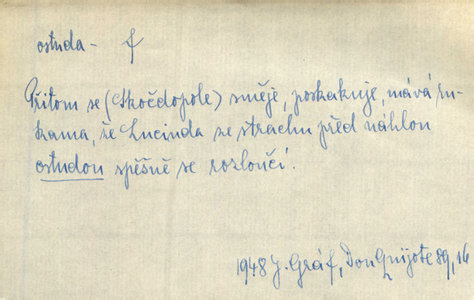 ostuda - f
Přitom se (Skočdopole) směje, poskakuje, mává ru-
kama, že Lucinda ze strachu před náhlou
ostudou spěšně se rozloučí.
1948 J. Gráf, Don Quijote 89, 16